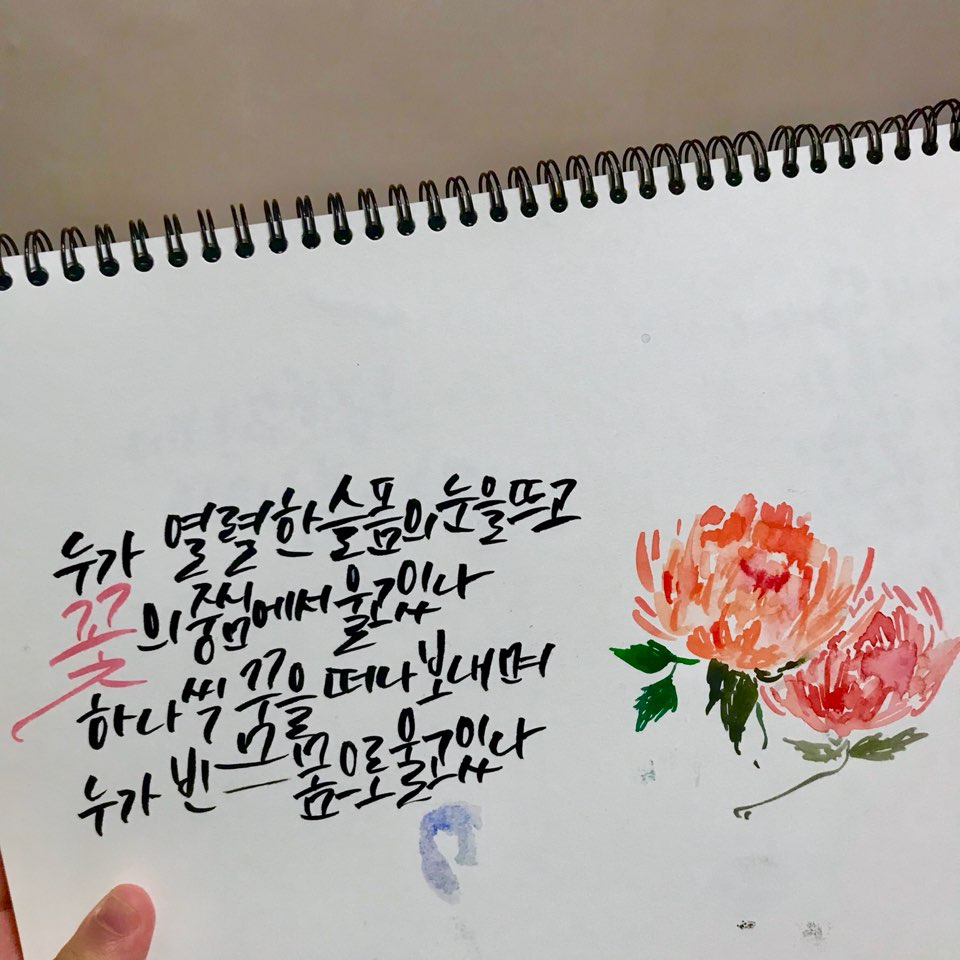 누가 열렬한 슬픔의 눈을 뜨고
꽃의 중심에서 울고있나
하나씩 꿈을 떠나보내며
누가 빈 몸으로 울고있나